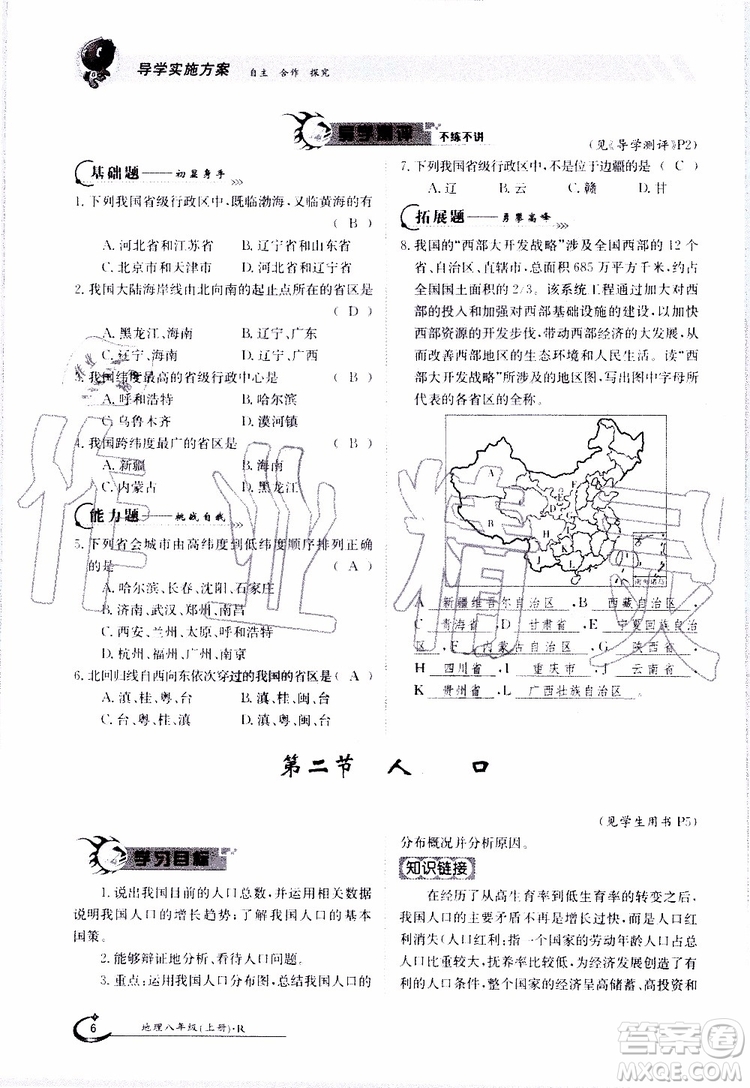 导学实施方案 自主 合作 探究
导学测评 不练不讲
基础题——初显身手
1. 下列我国省级行政区中,既临渤海,又临黄海的有
( B )
A. 河北省和江苏省 B. 辽宁省和山东省
C. 北京市和天津市 D. 辽宁省和河北省
2. 我国大陆海岸线由北向南的起止点所在的省区是
( D )
A. 黑龙江、海南 B. 辽宁、广东
C. 辽宁、海南 D. 辽宁、广西
3. 我国纬度最高的省级行政中心是 ( B )
A. 呼和浩特 B. 哈尔滨
C. 乌鲁木齐 D. 漠河镇
4. 我国跨纬度最广的省区是 ( B )
A. 新疆 B. 海南
C. 内蒙古 D. 黑龙江
能力题——挑战自我
5. 下列省会城市由高纬度到低纬度顺序排列正确
的是 ( A )
A. 哈尔滨、长春、沈阳、石家庄
B. 济南、武汉、郑州、南昌
C. 西安、兰州、太原、呼和浩特
D. 杭州、福州、广州、台北
6. 北回归线自西向东依次穿过的我国的省区是 ( A )
A. 滇、桂、粤、台 B. 滇、桂、闽、台
C. 台、粤、桂、滇 D. 台、闽、粤、滇
(见《导学测评》P2)
7. 下列我国省级行政区中,不是位于边疆的是 ( C )
A. 辽 B. 云 C. 赣 D. 甘
拓展题——勇攀高峰
8. 我国的“西部大开发战略”涉及全国西部的 12 个
省、自治区、直辖市,总面积 685 万平方千米,约占
全国国土面积的 2/3。该系统工程通过加大对西
部的投入和加强对西部基础设施的建设,以促进
西部资源的开发步伐,带动西部经济的大发展,从
而改善西部地区的生态环境和人民生活。读“西
部大开发战略”所涉及的地区图,写出图中字母所
代表的各省区的全称。
A B C D E F G H I J K L
南海诸岛
A 新疆维吾尔自治区 ,B 西藏自治区 、
C 青海省 、D 甘肃省 、E 宁夏回族自治
区 、F 内蒙古自治区 、G 陕西省 、
H 四川省 、I 重庆市 、J 云南省 、
K 贵州省 、L 广西壮族自治区 。
第二节 人 口
学习目标
1. 说出我国目前的人口总数,并运用相关数据
说明我国人口的增长趋势;了解我国人口的基本
国策。
2. 能够辩证地分析、看待人口问题。
3. 重点:运用我国人口分布图,总结我国人口的
(见学生用书 P5)
分布概况并分析原因。
知识链接
在经历了从高生育率到低生育率的转变之后,
我国人口的主要矛盾不再是增长过快,而是人口红
利消失(人口红利:指一个国家的劳动年龄人口占总
人口比重较大,抚养率比较低,为经济发展创造了有
利的人口条件,整个国家的经济呈高储蓄、高投资和
6 地理八年级(上册)·R
作业精灵